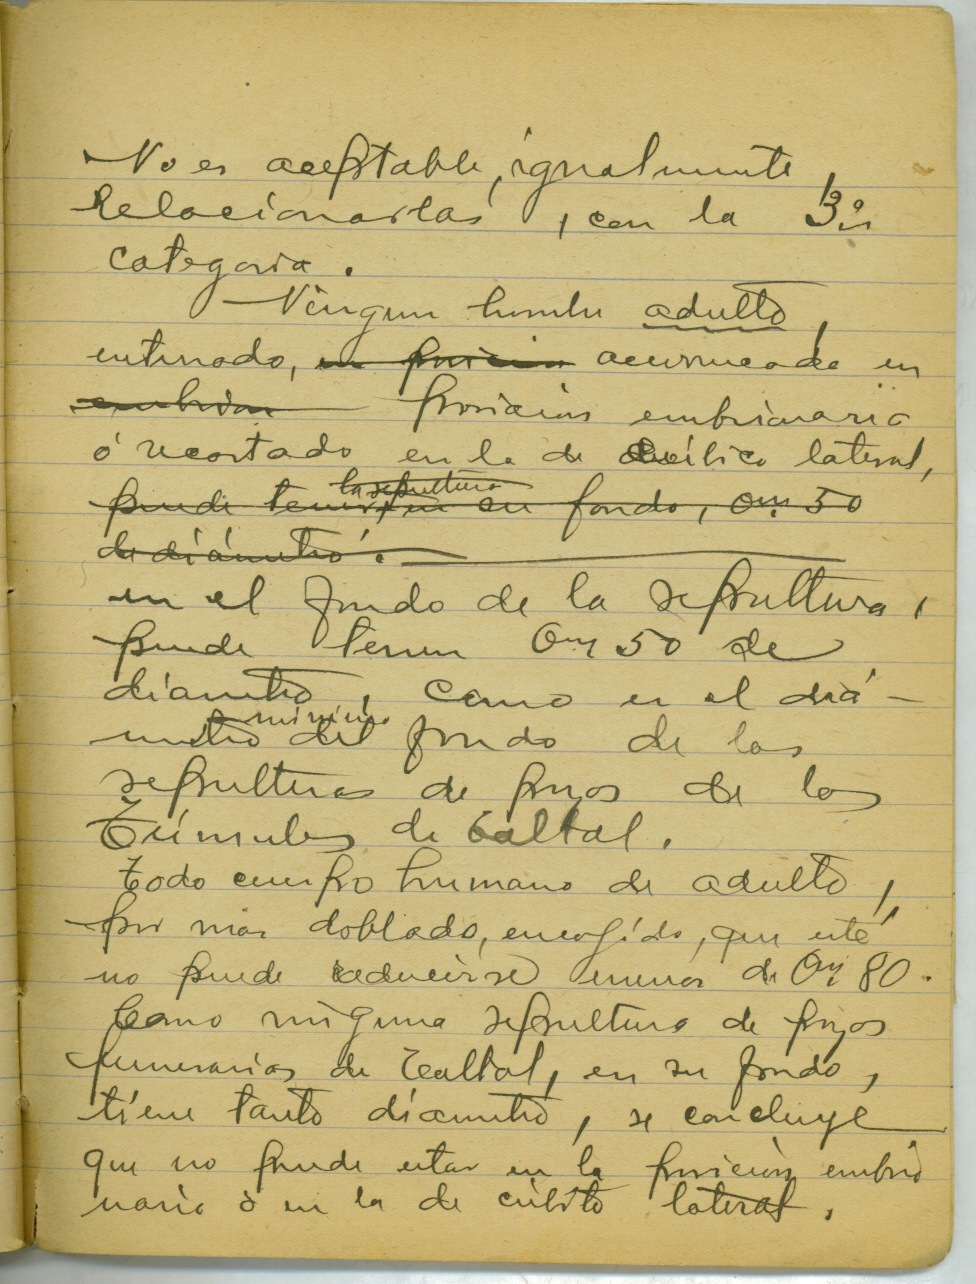 No es aceptable, igualmente,
relacionarlas, con la 3ª
categoria.
Ningun hombre adulto,
enterrado, en posicion acurrucado en
embrion posicion embrionaria
ó recostado en la de cubito lateral,
la sepultura
puede tener, en su fondo, 0m 50
de diámetro.
en el fondo de la sepultura,
puede tener 0m 50 de
diametro, como es el diá-
minimo
metro del fondo de las
sepulturas de pozos de los
Túmulos de Taltal.
Todo cuerpo humano de adulto,
por mas doblado, encogido, que esté
no puede reducirse menos de 0m 80.
Como ninguna sepultura de pozos
funerarios de Taltal, en su fondo,
tiene tanto diametro, se concluye
que no puede estar en la posicion embrio
naria ó en la de cúbito lateral.